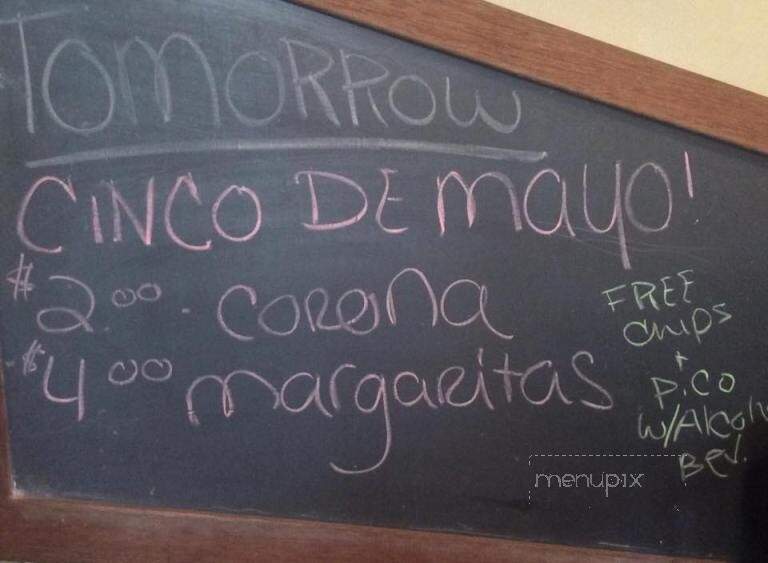 TOMORROW
CINCO DE MAYO!
$2.00 - CORONA
$4.00 margaritas
FREE
chips
+
PICO
w/Alcohol
Bev.
menupix